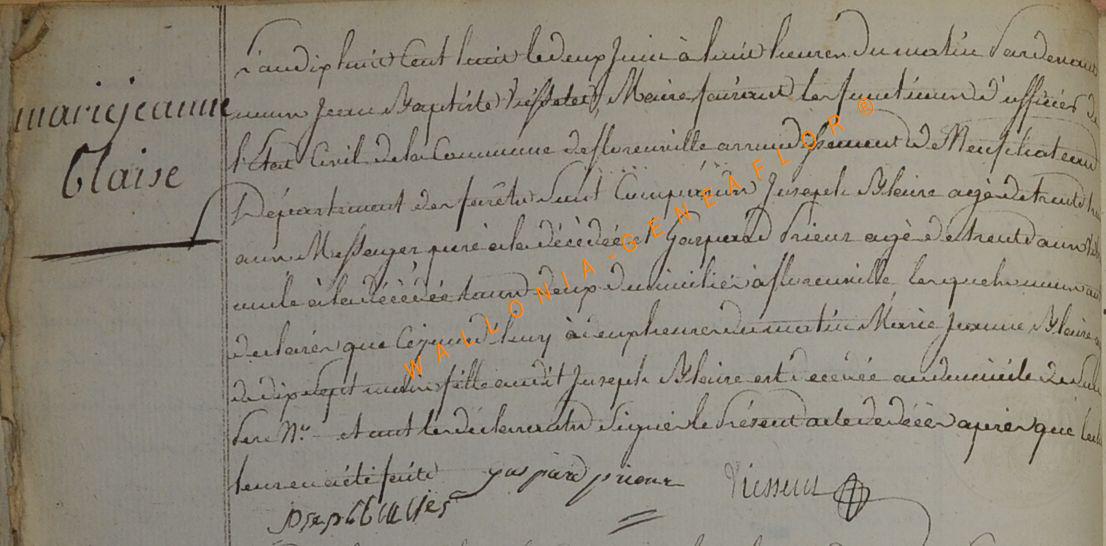 marie jeanne
Blaise
L'an dix huit Cent huit le deux Juin à huit heures du matin Pardevant
nous Jean Baptiste Maire faisant les fonctions d'officier de
l'Etat Civil de la Commune de florenville arrondissement de Neufchateau
Département des forêts sont Comparus Joseph Blaise agé de trente
ans Messager père à la décédée et Gaspard Prieur agé de trente ans
oncle à la décédée tous deux domiciliés à florenville lesquels nous ont
declarés que Cejourd'huy à deux heures du matin Marie Jeanne Blaise
de dix sept mois fille audit Joseph Blaise est décédée au domicile de
Pere N.° et ont les déclarants Signés le Présent acte de décès après que
leur en a été faite
gaspard prieur
joseph blaises
WALLONIA-GENEAFLOR®